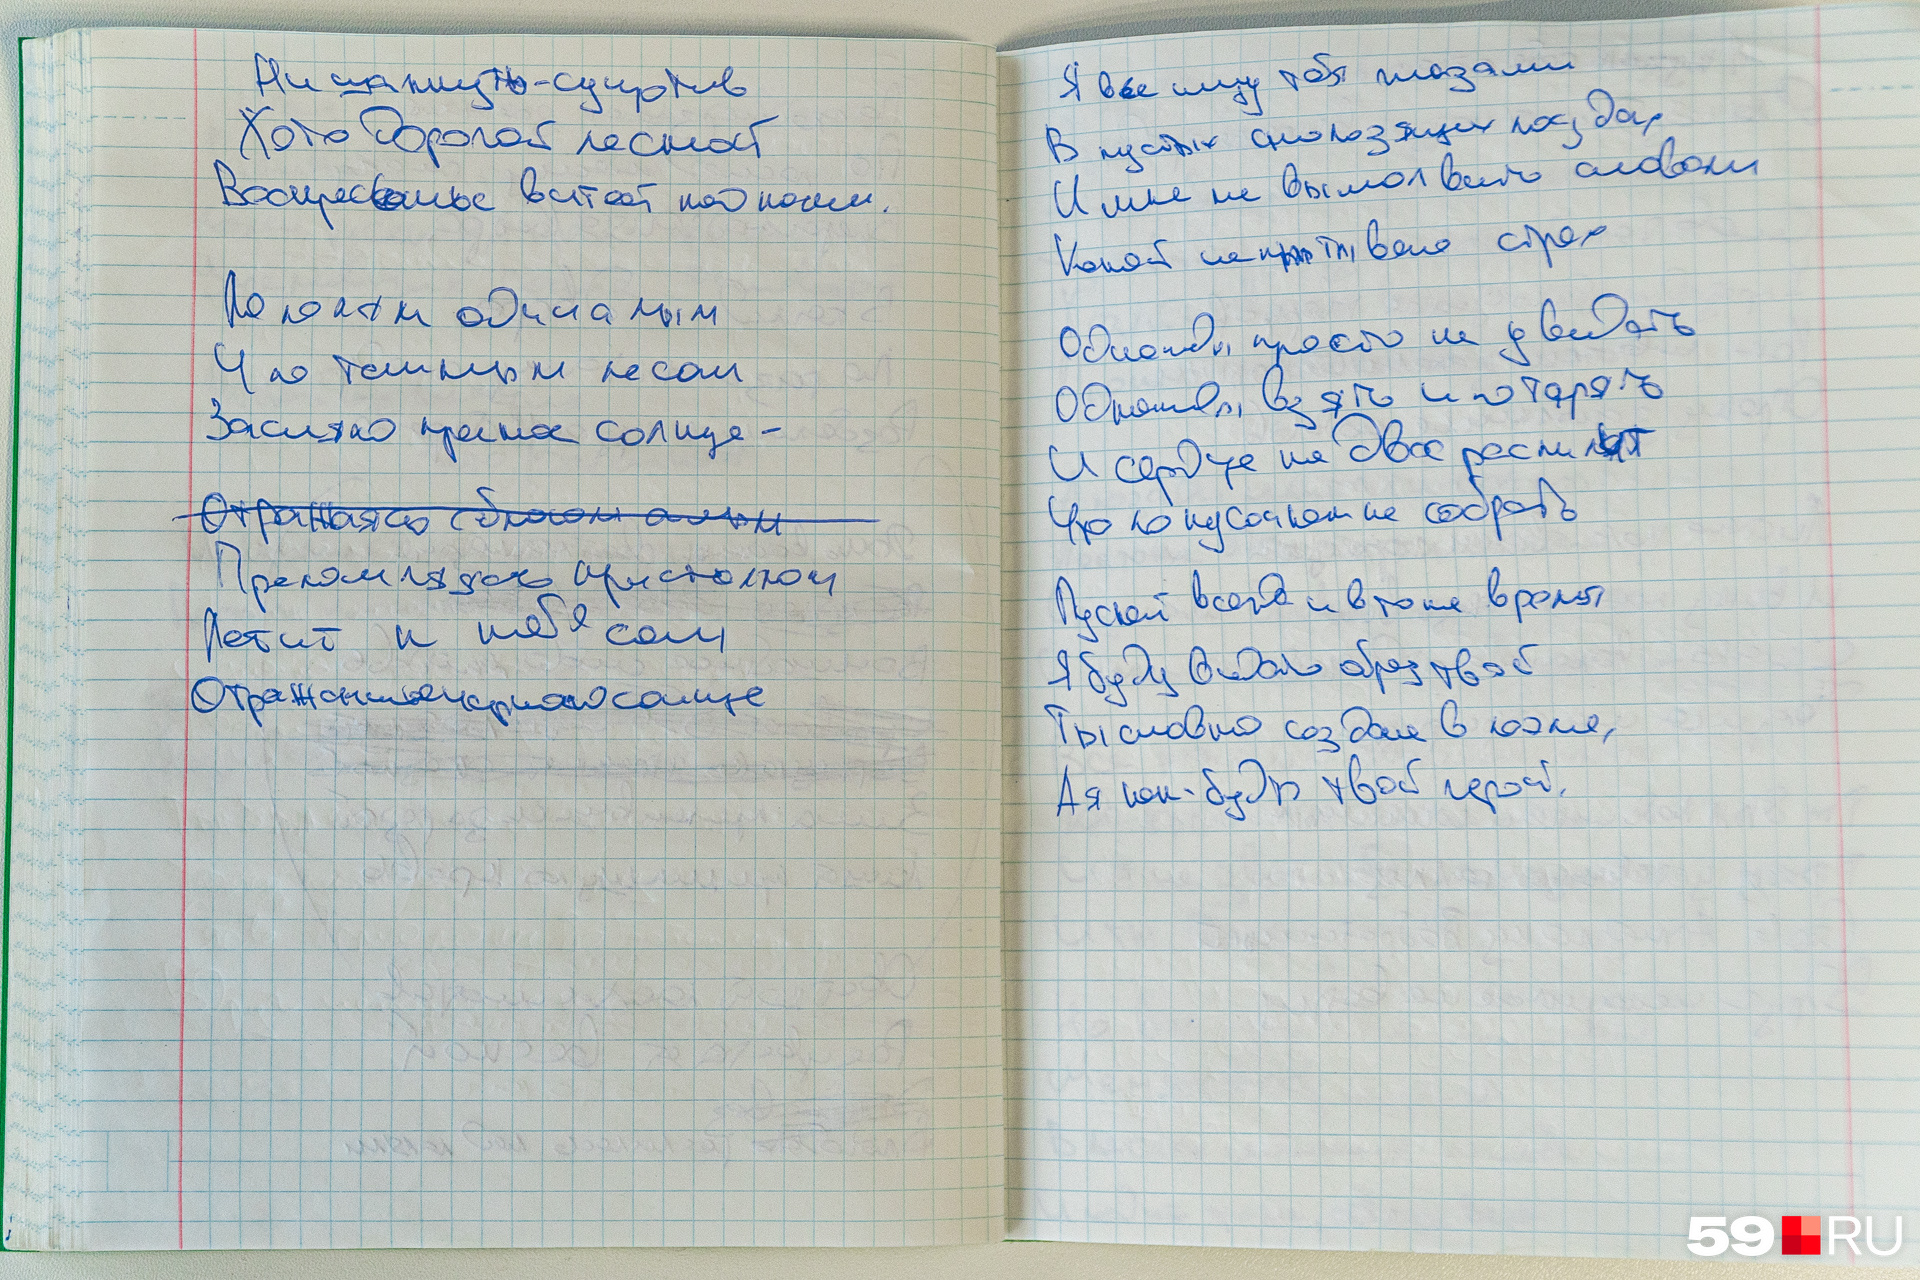 Ни шагнуть - супротив
Хоть дорогой лесной
Воскресенье витает над нами.
одичалым
Что темным лесам
Засияло красное солнце -
Отражаясь с
Преломляясь кристаллом
Летит к небесам
Отраженье черного солнце
Я все ищу тебя глазами
В пустых сползящих поездах
И мне не вымолвить словами
Какой страх
Однажды просто не увидать
Однажды взять и потерять
И сердце на двое распилят
Что по кусочкам не собрать
Пускай всегда и в тоже время
Я буду видеть образ твой
Ты словно создана в поэме,
А я как-будто твой герой.
59.RU